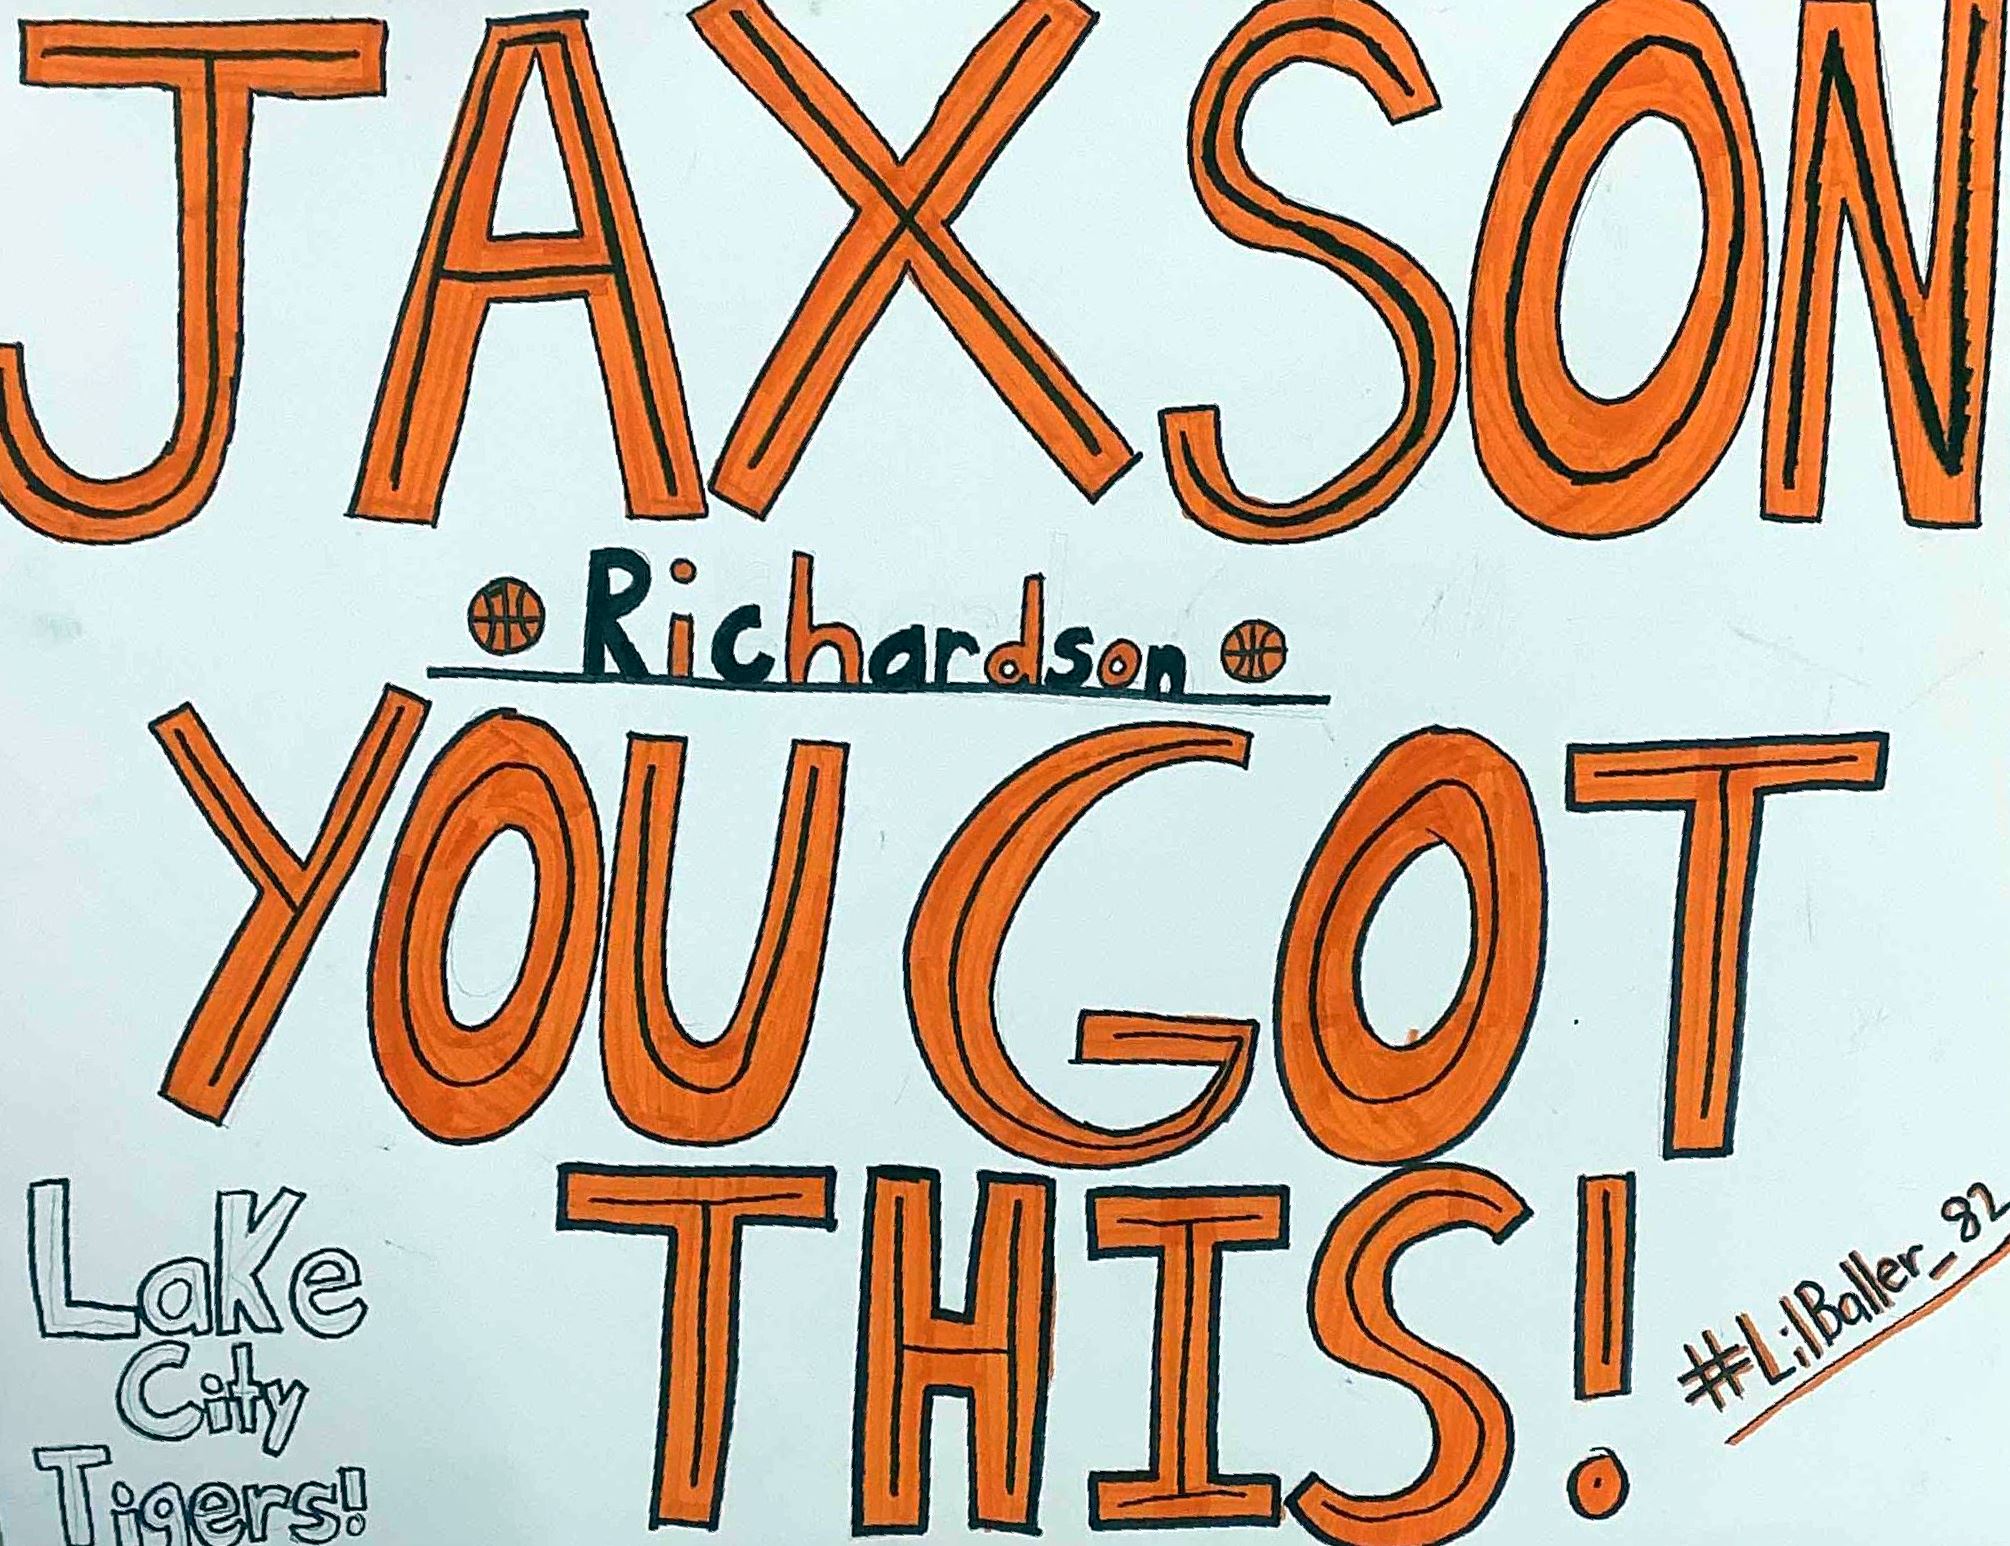 JAXSON
Richardson
YOU GOT
THIS!
Lake
City
Tigers!
#LilBaller_82